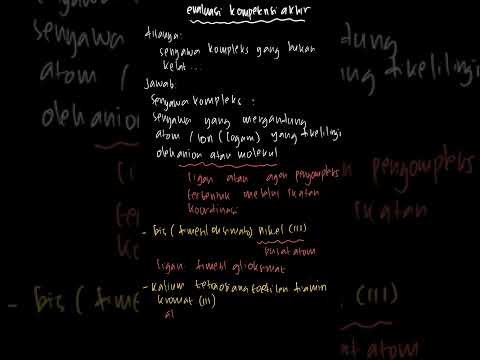 evaluasi kompetensi akhir
ditanya:
senyawa kompleks yang bukan
kelat...
Jawab:
senyawa kompleks :
senyawa yang mengandung
atom / ion (logam) yang dikelilingi
oleh anion atau molekul
ligan atau agen pengompleks
terbentuk melalui ikatan
koordinasi
- bis (dimetil oksimato) nikel (III)
pusat atom
ligan dimetil glioksmat
- kalium
kromat (III)